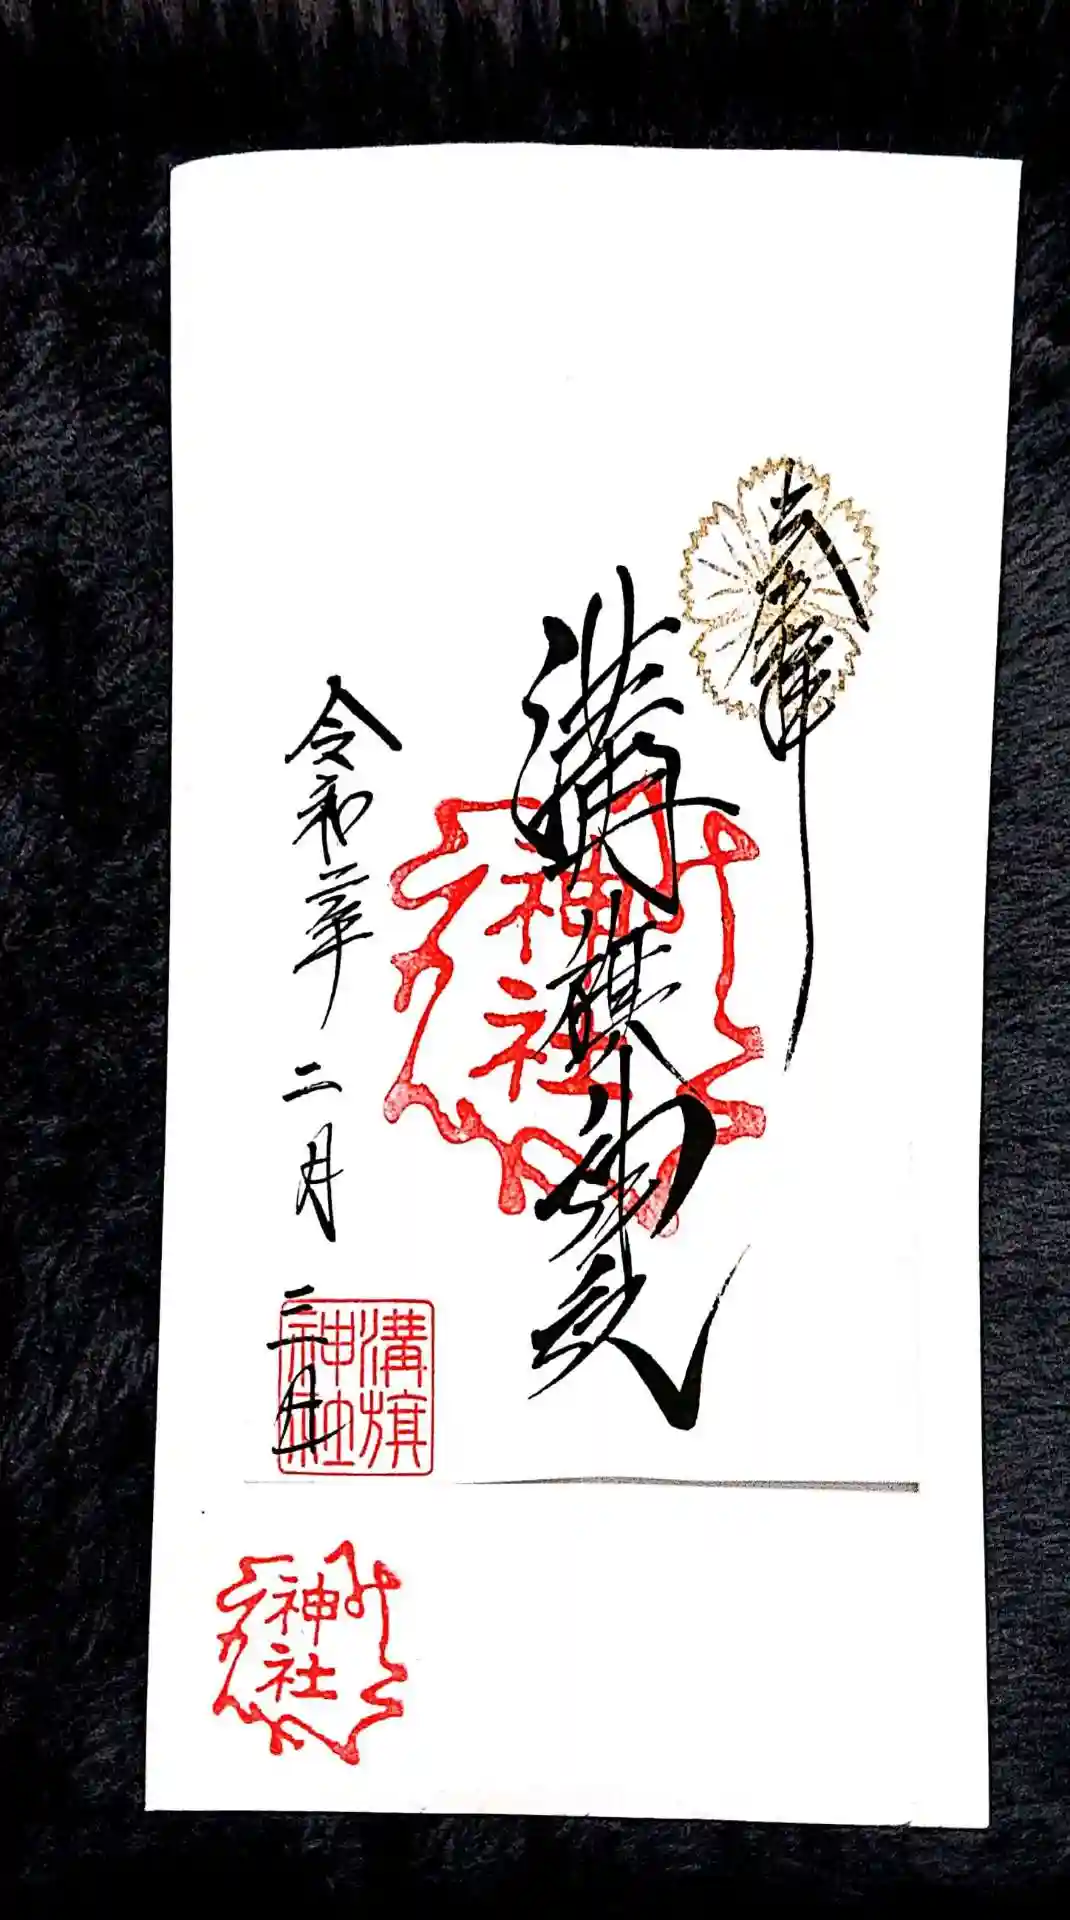 溝旗神社
神社
令和二年 二月 三日
溝旗
神社
神社